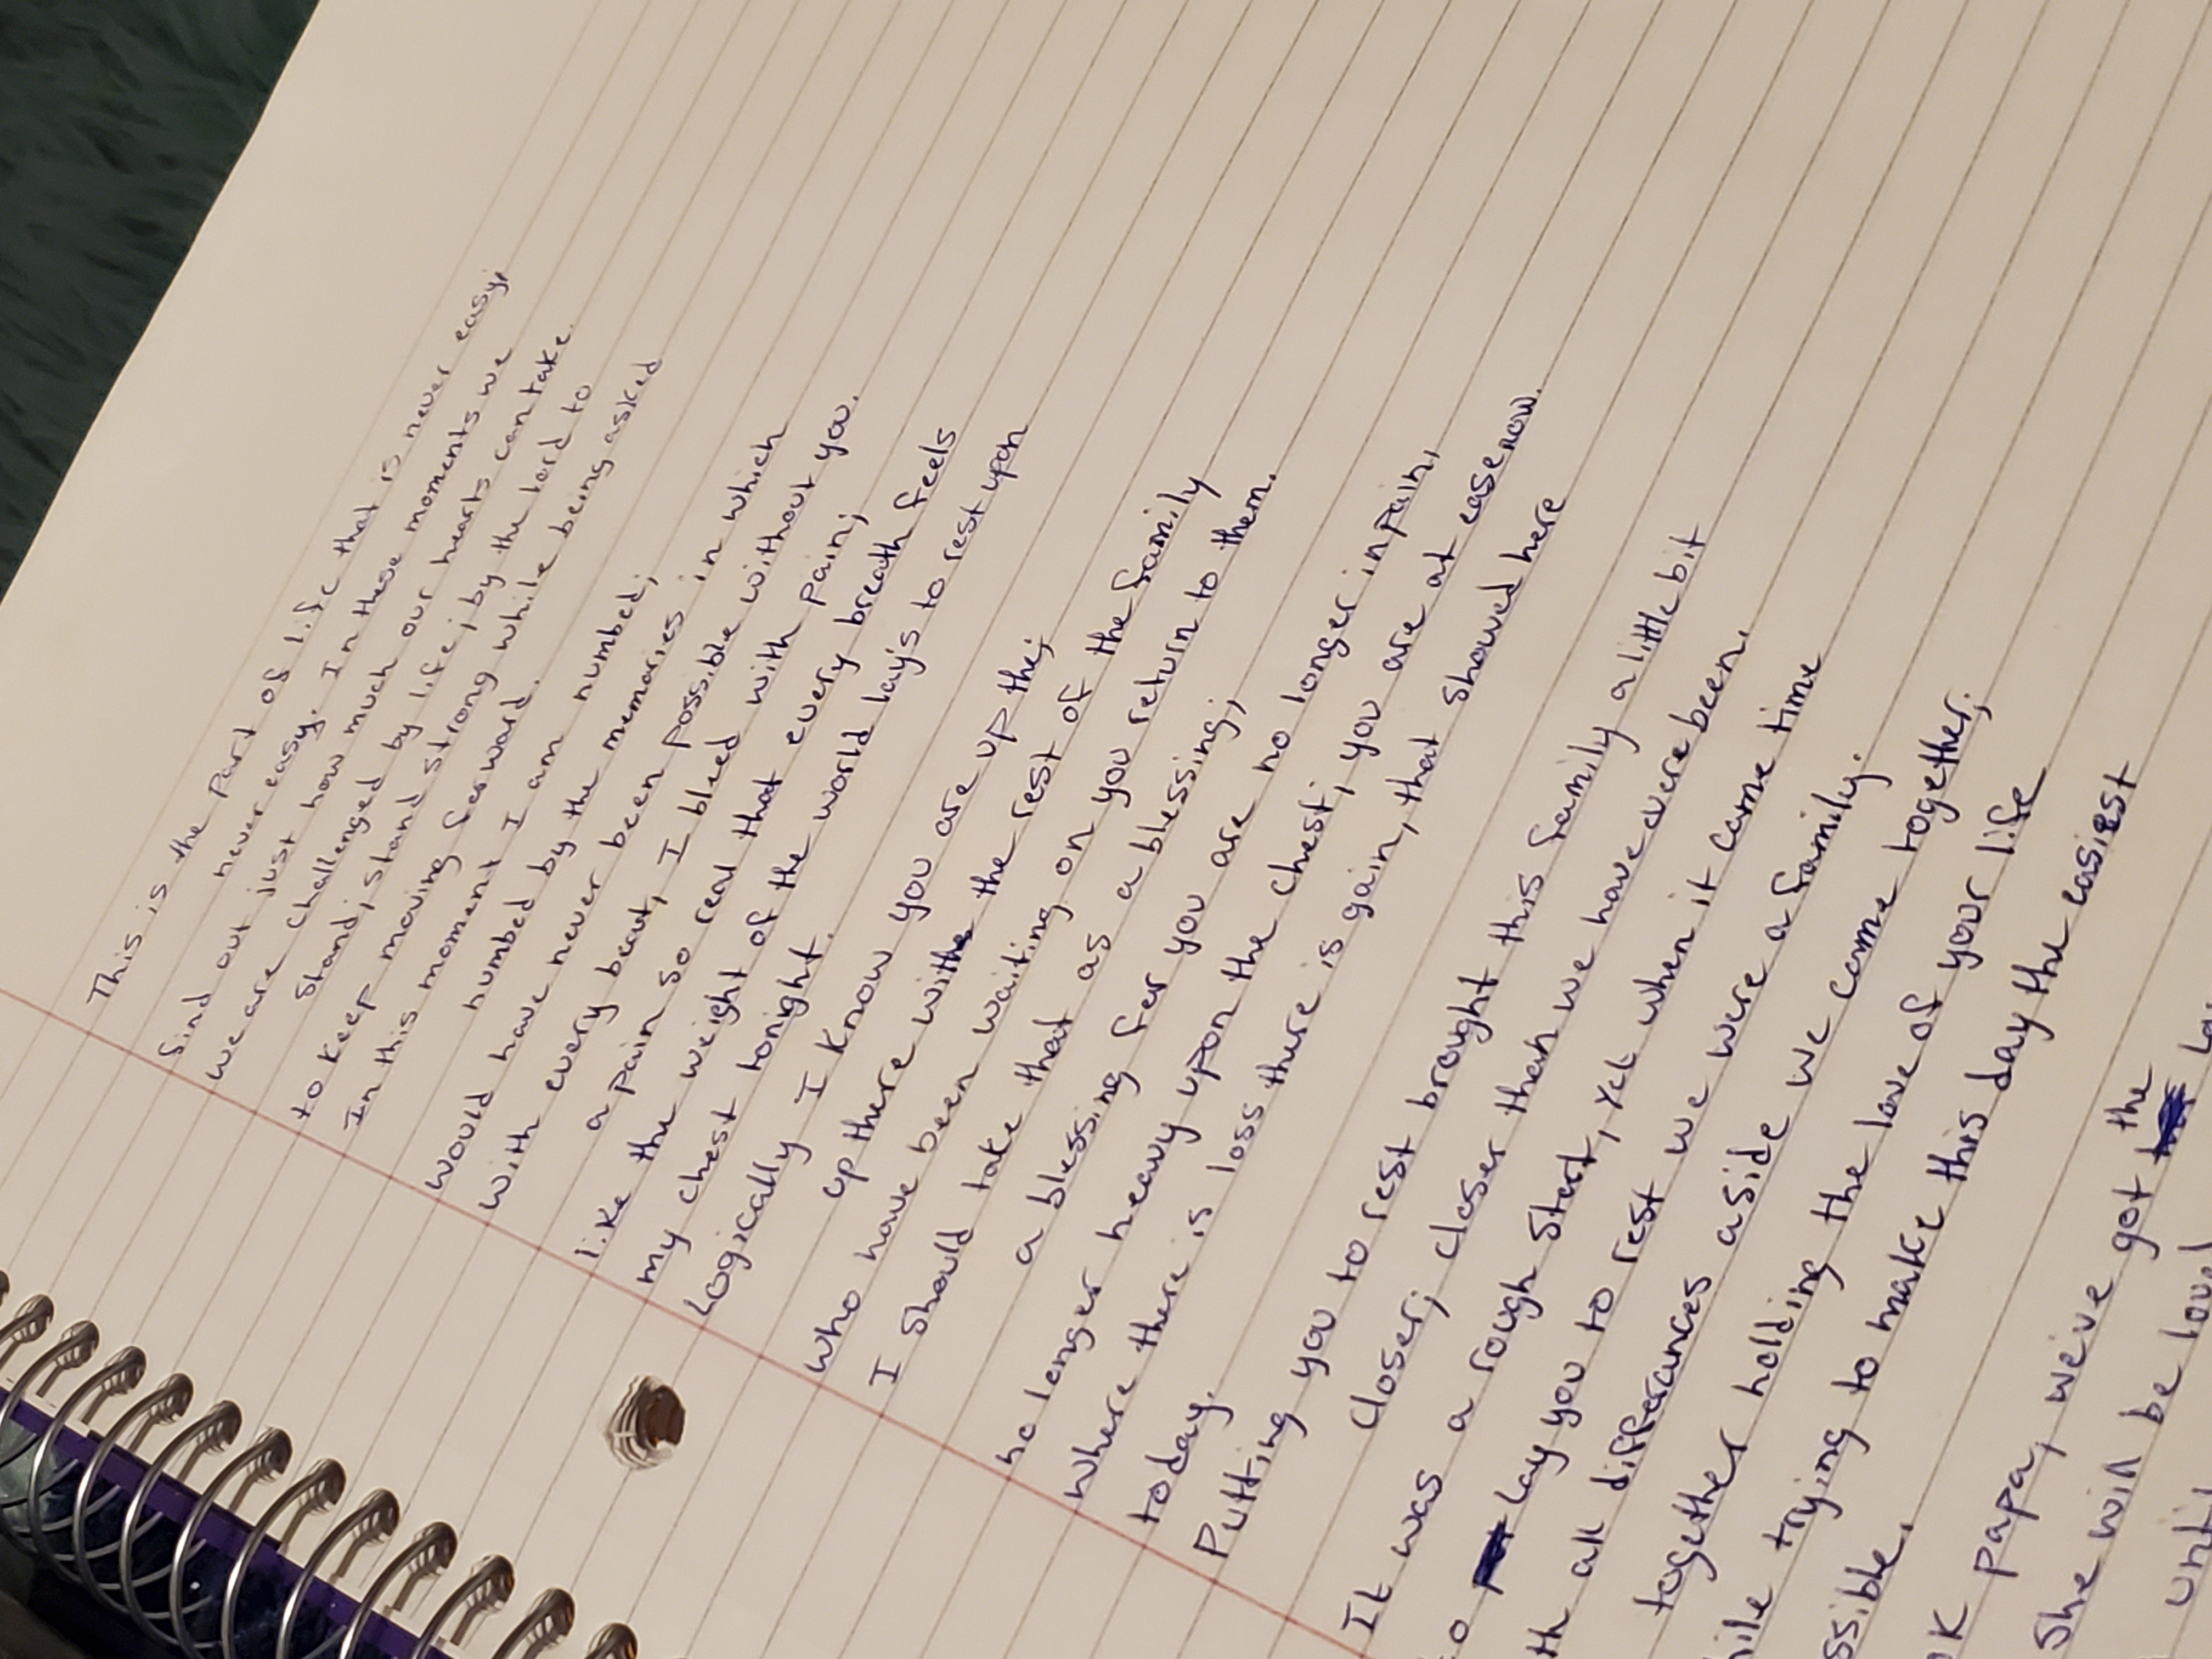 This is the part of life that is never easy;
never easy. In these moments we
find out just how much our hearts can take.
We are challenged by life; by the lord to
stand; stand strong while being asked
to keep moving forward.
In this moment I am numbed;
numbed by the memories in which
would have never been possible without you.
With every beat, I bleed with pain;
a pain so real that every breath feels
like the weight of the world lay's to rest upon
my chest tonight.
Logically I know you are up the;
up there with the rest of the family
who have been waiting on you return to them.
I should take that as a blessing;
a blessing for you are no longer in pain,
no longer heavy upon the chest; you are at ease now.
Where there is loss there is gain, that showed here
today.
Putting you to rest brought this family a little bit
closer; closer than we have evere been.
It was a rough start, yet when it came time
to lay you to rest we were a family.
th all differances aside we came together;
together holding the love of your life
hile trying to make this day the easiest
ssible.
OK papa, we've got the
She will be loved
until